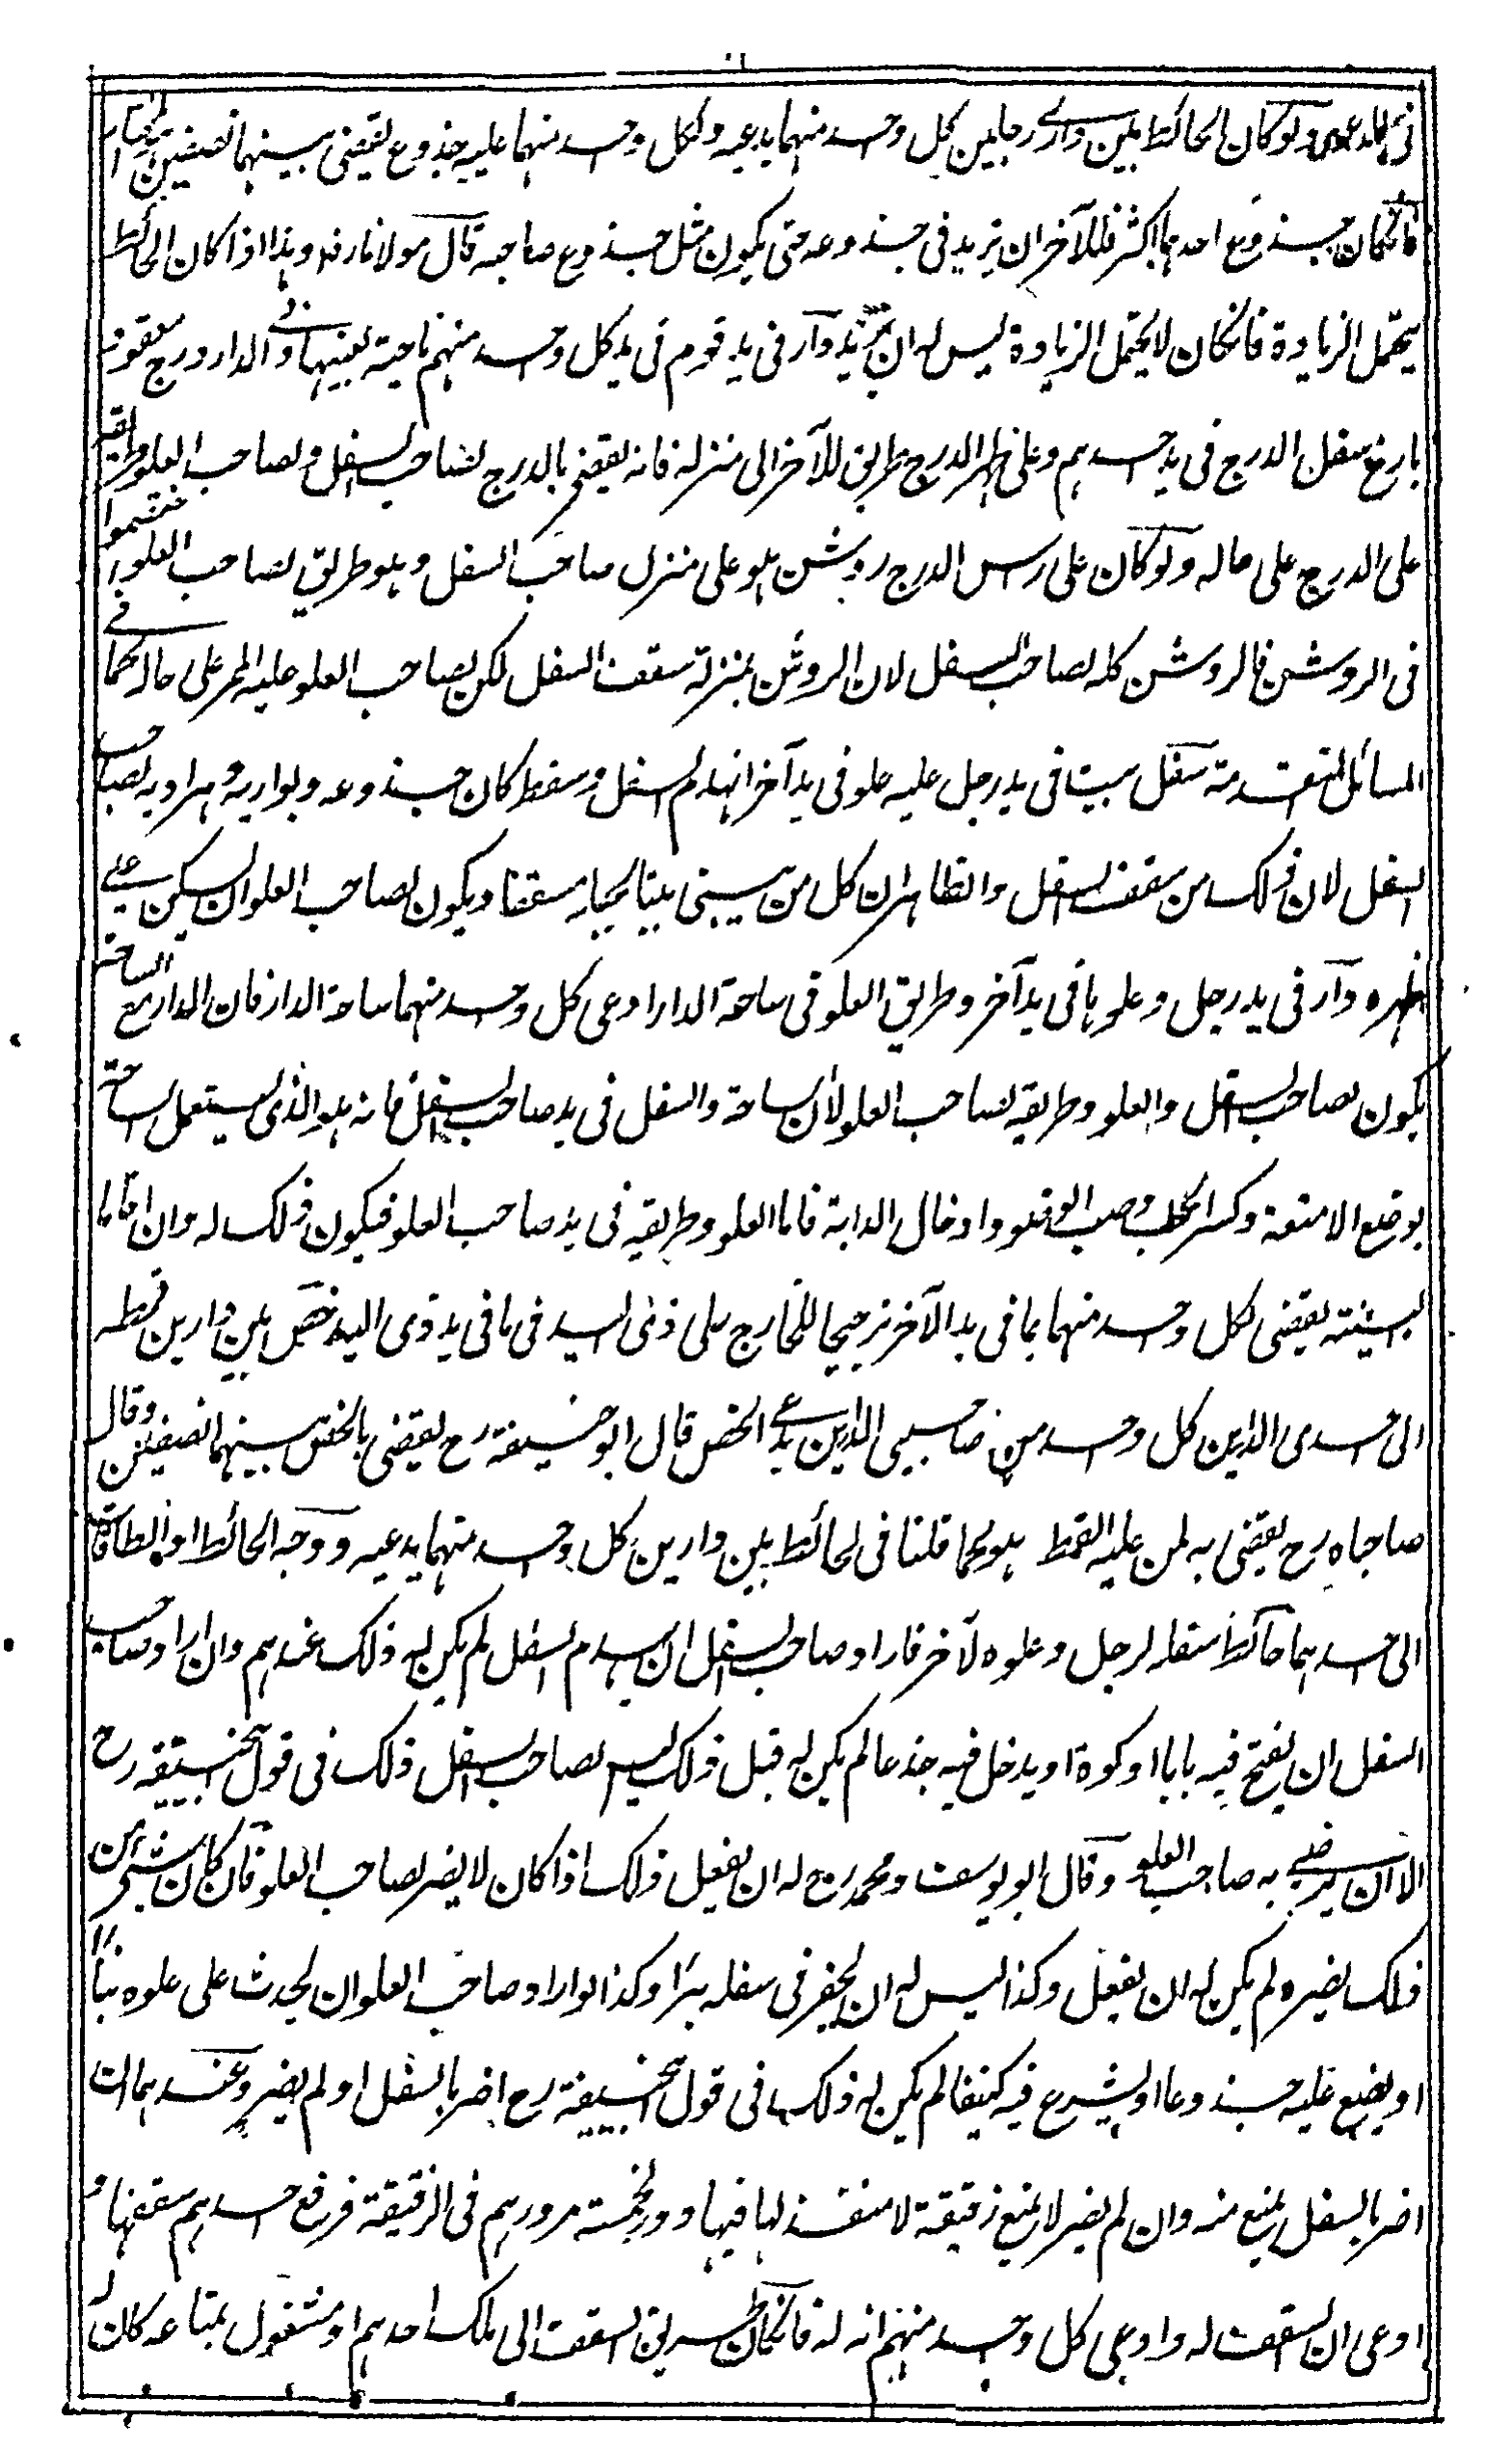 ولو كان الحائط بين داري رجلين كل واحد منهما يدعيه ولكل واحد منهما عليه جذوع يقضى بينهما نصفين
فانكان جذوع احدهما اكثر فللآخر ان يزيد في جذوعه حتى يكون مثل جذوع صاحبه قال مولانا رضه وهذا اذا كان الحائط
يحتمل الزيادة فانكان لا يحتمل الزيادة ليس له ان يزيد دار في يد قوم في يد كل واحد منهم ناحية بعينها وفي الدار درج معقود
بازغ سفل الدرج في يد احدهم وعلى ظهر الدرج طريق للآخر الى منزله فانه يقضى بالدرج لصاحب السفل ولصاحب العلو طريقه
على الدرج على حاله ولو كان على رأس الدرج روشن هو على منزل صاحب السفل وهو طريق لصاحب العلو اختصموا
في الروشن فالروشن كله لصاحب السفل لان الروشن بمنزلة سقف السفل لكن لصاحب العلو عليه الممر على حاله كما في
المسائل المتقدمة سفل بيت في يد رجل عليه علو في يد آخر انهدم السفل وسقط كان جذوعه وبواريه وهراديه لصاحب
السفل لان ذلك من سقف السفل والظاهر ان كل من يبنى بيتا يجعله مسقفا ويكون لصاحب العلو ان يسكن على
ظهره دار في يد رجل وعلوها في يد آخر وطريق العلو في ساحة الدار ادعى كل واحد منهما ساحة الدار فان الدار مع الساحة
يكون لصاحب السفل والعلو وطريقه لصاحب العلو لان الساحة والسفل في يد صاحب السفل فانه هو الذي يستعمل الساحة
بوضع الامتعة وكسر الحطب وصب الوضوء وادخال الدابة فاما العلو وطريقه في يد صاحب العلو فيكون ذلك له وان اقاما
البينة يقضى لكل واحد منهما بما في يد الآخر ترجيحا للخارج على ذي اليد في ما في يد ذوى اليد خص بين دارين قمطه
الى احدى الدارين كل واحد من صاحبي الدارين يدعى الخص قال ابو حنيفة رح يقضى بالخص بينهما نصفين وقال
صاحباه رح يقضى به لمن عليه القمط هو كما قلنا في الحائط بين دارين كل واحد منهما يدعيه ووجه الحائط او الطاقات
الى احدهما حائط سفله لرجل وعلوه لآخر فاراد صاحب السفل ان يهدم السفل لم يكن له ذلك عندهم وان اراد صاحب
السفل ان يفتح فيه بابا او كوة او يدخل فيه جذعا لم يكن له قبل ذلك ليس لصاحب السفل ذلك في قول ابيحنيفة رح
الا ان يرضى به صاحب العلو وقال ابو يوسف ومحمد رح له ان يفعل ذلك اذا كان لا يضر لصاحب العلو فان كان شئ من
ذلك يضره لم يكن له ان يفعل وكذا ليس له ان يحفر في سفله بئرا وكذا لو اراد صاحب العلو ان يحدث على علوه بناء
او يضع عليه جذوعا او يشرع فيه كنيفا لم يكن له ذلك في قول ابيحنيفة رح اضر بالسفل او لم يضر وعندهما ان
اضر بالسفل يمنع منه وان لم يضر لا يمنع زقيقة لا منفذ لها فيها دور لخمسة مرورهم في الزقيقة فرفع احدهم سقفها و
ادعى ان السقف له وادعى كل واحد منهم انه له فانكان طريق السقف الى ملك احدهم او مشغول بمتاعه كان